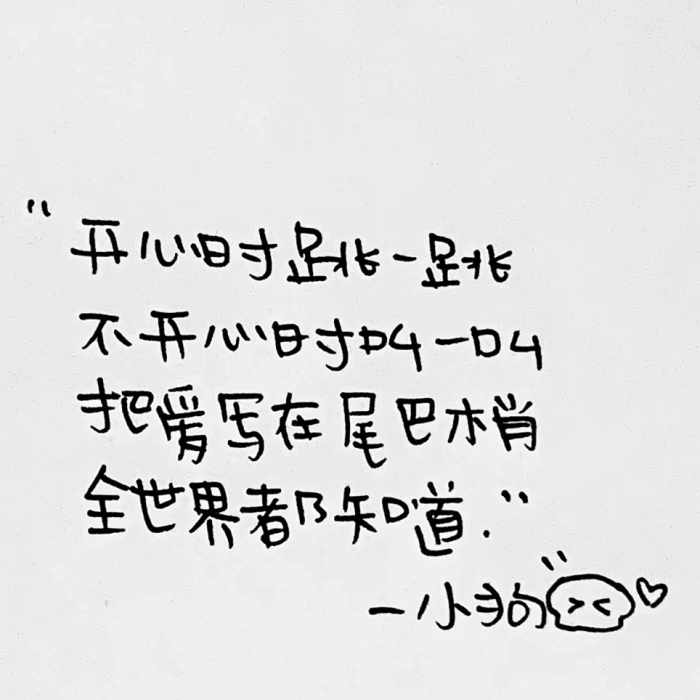 "开心时跳一跳
不开心时叫一叫
把爱写在尾巴梢
全世界都知道."
一小狗